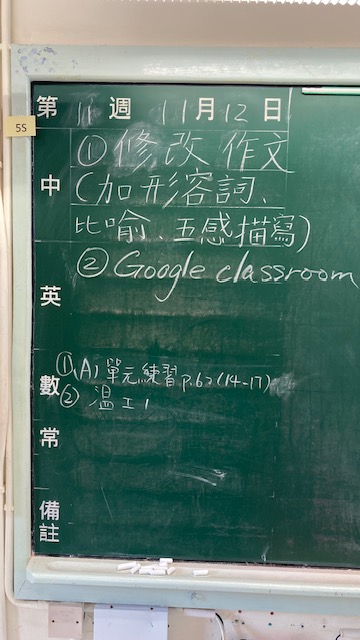 5S
第 11 週 11月12日
中 ①修改 作文
(加形容詞、
比喻、五感描寫)
② Google classroom
英
數 ①A) 單元練習 p.62(14-17)
② 溫工1
常
備註